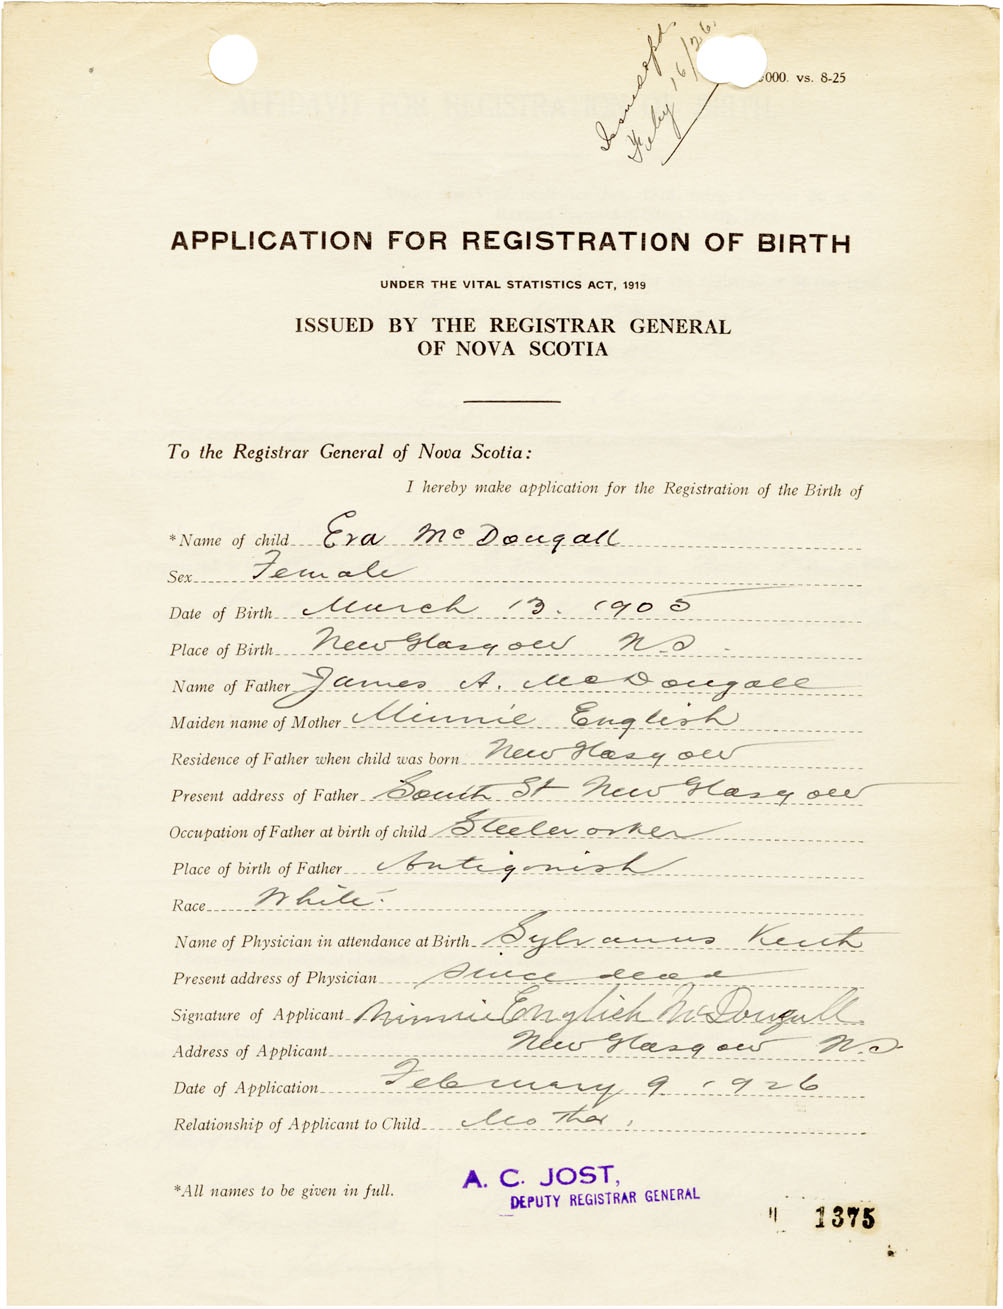 Issued
Feby 16/26.
000. vs. 8-25
APPLICATION FOR REGISTRATION OF BIRTH
UNDER THE VITAL STATISTICS ACT, 1919
ISSUED BY THE REGISTRAR GENERAL
OF NOVA SCOTIA
To the Registrar General of Nova Scotia:
I hereby make application for the Registration of the Birth of
*Name of child Eva McDougall
Sex Female
Date of Birth March 13. 1905
Place of Birth New Glasgow N.S.
Name of Father James A. McDougall
Maiden name of Mother Minnie English
Residence of Father when child was born New Glasgow
Present address of Father South St New Glasgow
Occupation of Father at birth of child Steelworker
Place of birth of Father Antigonish
Race White.
Name of Physician in attendance at Birth Sylvanus Keith
Present address of Physician since dead
Signature of Applicant Minnie English McDougall
Address of Applicant New Glasgow N.S.
Date of Application February 9 1926
Relationship of Applicant to Child Mother.
*All names to be given in full.
A. C. JOST,
DEPUTY REGISTRAR GENERAL
1375